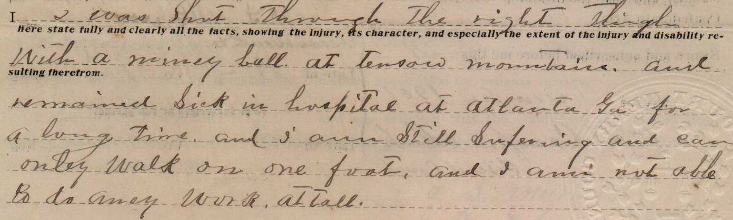 I I was Shot through the right thigh
here state fully and clearly all the facts, showing the injury, its character, and especially the extent of the injury and disability re-
With a miney ball. at tensow mountain. and
sulting therefrom.
remained Sick in hospital at atlanta Ga for
a long time. and i am Still Suferring and can
onley Walk on one foot. and I am not able
to do aney Work. attall.